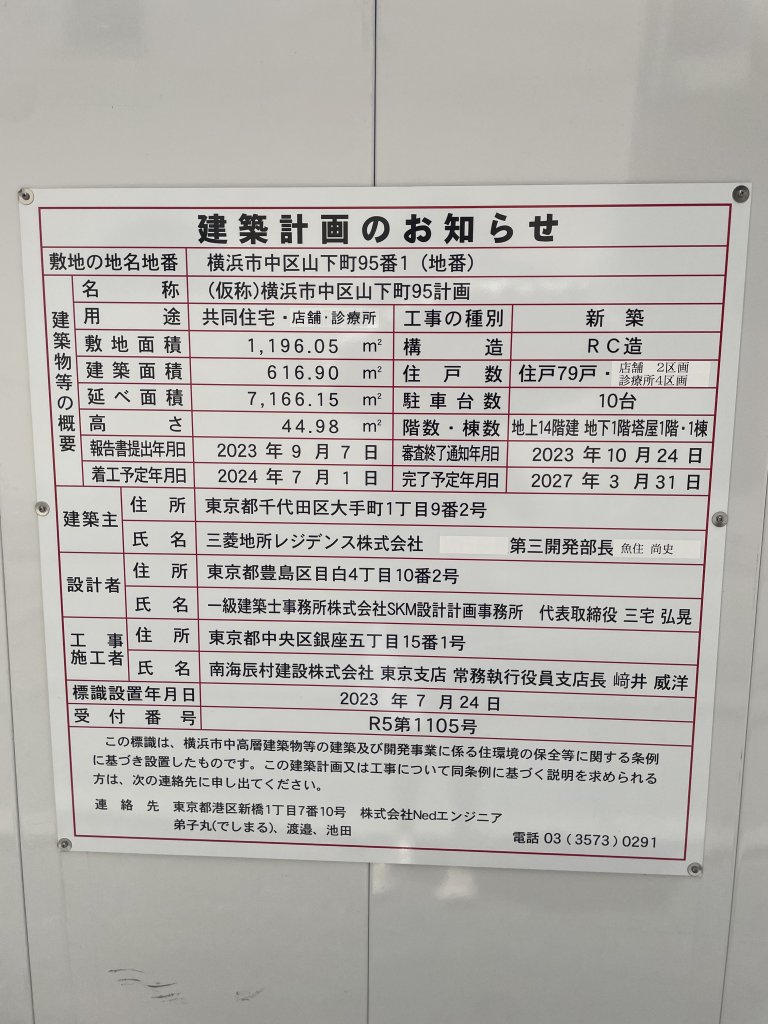 建築計画のお知らせ
敷地の地名地番 横浜市中区山下町95番1（地番）
建築物等の概要
名称 (仮称)横浜市中区山下町95計画
用途 共同住宅・店舗・診療所 工事の種別 新築
敷地面積 1,196.05 m² 構造 RC造
建築面積 616.90 m² 住戸数 住戸79戸・店舗 2区画 診療所4区画
延べ面積 7,166.15 m² 駐車台数 10台
高さ 44.98 m² 階数・棟数 地上14階建 地下1階塔屋1階・1棟
報告書提出年月日 2023年9月7日 審査終了通知年月日 2023年10月24日
着工予定年月日 2024年7月1日 完了予定年月日 2027年3月31日
建築主 住所 東京都千代田区大手町1丁目9番2号
氏名 三菱地所レジデンス株式会社 第三開発部長 魚住 尚史
設計者 住所 東京都豊島区目白4丁目10番2号
氏名 一級建築士事務所株式会社SKM設計計画事務所 代表取締役 三宅 弘晃
工事施工者 住所 東京都中央区銀座五丁目15番1号
氏名 南海辰村建設株式会社 東京支店 常務執行役員支店長 﨑井 威洋
標識設置年月日 2023年7月24日
受付番号 R5第1105号
この標識は、横浜市中高層建築物等の建築及び開発事業に係る住環境の保全等に関する条例
に基づき設置したものです。この建築計画又は工事について同条例に基づく説明を求められる
方は、次の連絡先に申し出てください。
連絡先 東京都港区新橋1丁目7番10号 株式会社Nedエンジニア
弟子丸(でしまる)、渡邉、池田
電話 03（3573）0291